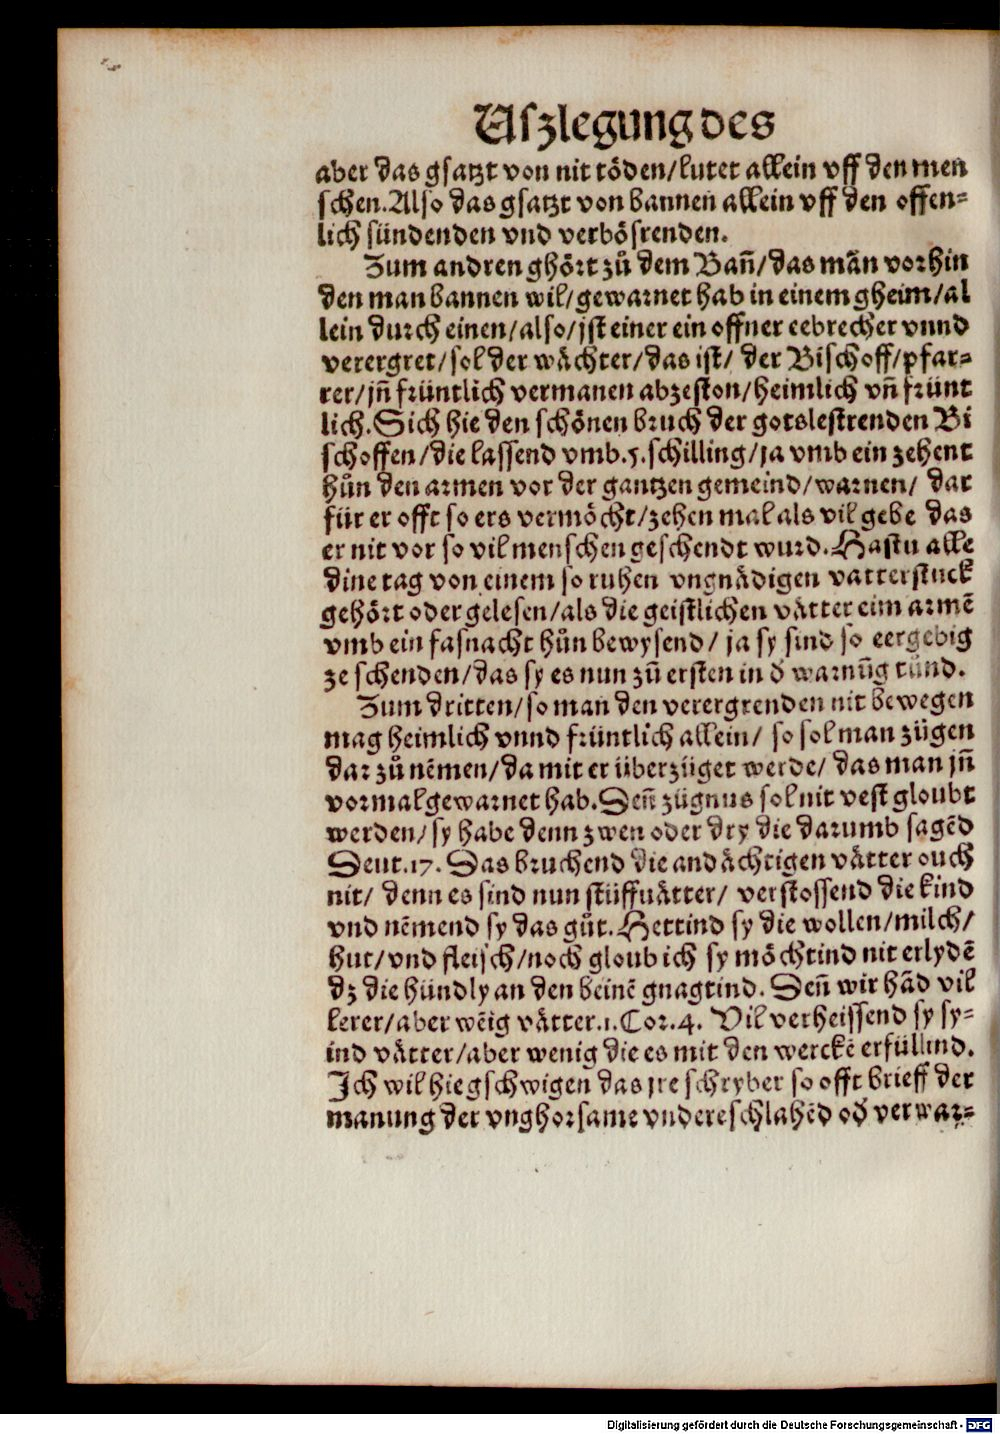 Uſzlegung des
aber das gſatzt von nit töden/lutet allein vff den men
ſchen.Alſo das gſatzt von bannen allein vff den offen⸗
lich ſündenden vnd verböſrenden.
Zum andren ghört zů dem Bañ/das mãn vorhin
den man bannen wil/gewarnet hab in einem gheim/al
lein durch einen/alſo/jſt einer ein offner eebrecher vnnd
verergret/ſol der wächter/das iſt/ der Biſchoff/pfar⸗
rer/jñ früntlich vermanen abzeſton/heimlich vñ frünt
lich.Sich hie den ſchönen bruch der gotsleſtrenden Bi
ſchoffen/die laſſend vmb.5.ſchilling/ja vmb ein zehent
hůn den armen vor der gantzen gemeind/warnen/ dar
für er offt ſo ers vermöcht/zehen mal als vil gebe das
er nit vor ſo vil menſchen geſchendt wurd.Haſtu alle
dine tag von einem ſo ruhen vngnädigen vatterſtuck
gehört oder geleſen/als die geiſtlichen vätter eim armẽ
vmb ein faſnacht hůn bewyſend/ ja ſy ſind ſo eergebig
ze ſchenden/das ſy es nun zů erſten in d̕ warnũg tůnd.
Zum dritten/ſo man den verergrenden nit bewegen
mag heimlich vnnd früntlich allein/ ſo ſol man zügen
dar zů nẽmen/da mit er überzüget werde/ das man jñ
vormal gewarnet hab.Deñ zügnus ſol nit veſt gloubt
werden/ſy habe denn zwen oder dry die darumb ſagẽd
Deut.17. Das bruchend die andächtigen vätter ouch
nit/ denn es ſind nun ſtüffuätter/ verſtoſſend die kind
vnd nẽmend ſy das gůt.Hettind ſy die wollen/milch/
hut/vnd fleiſch/noch gloub ich ſy möchtind nit erlydẽ
dz die hündly an den beinẽ gnagtind. Deñ wir hãd vil
lerer/aber wẽig vätter.1.Cor.4. Vil verheiſſend ſy ſy⸗
ind vätter/aber wenig die es mit den werckẽ erfüllind.
Ich wil hie gſchwigen das jre ſchryber ſo offt brieff der
manung der vnghorſame vndereſchlahẽd od̕ verwar⸗
Digitalisierung gefördert durch die Deutsche Forschungsgemeinschaft - DFG